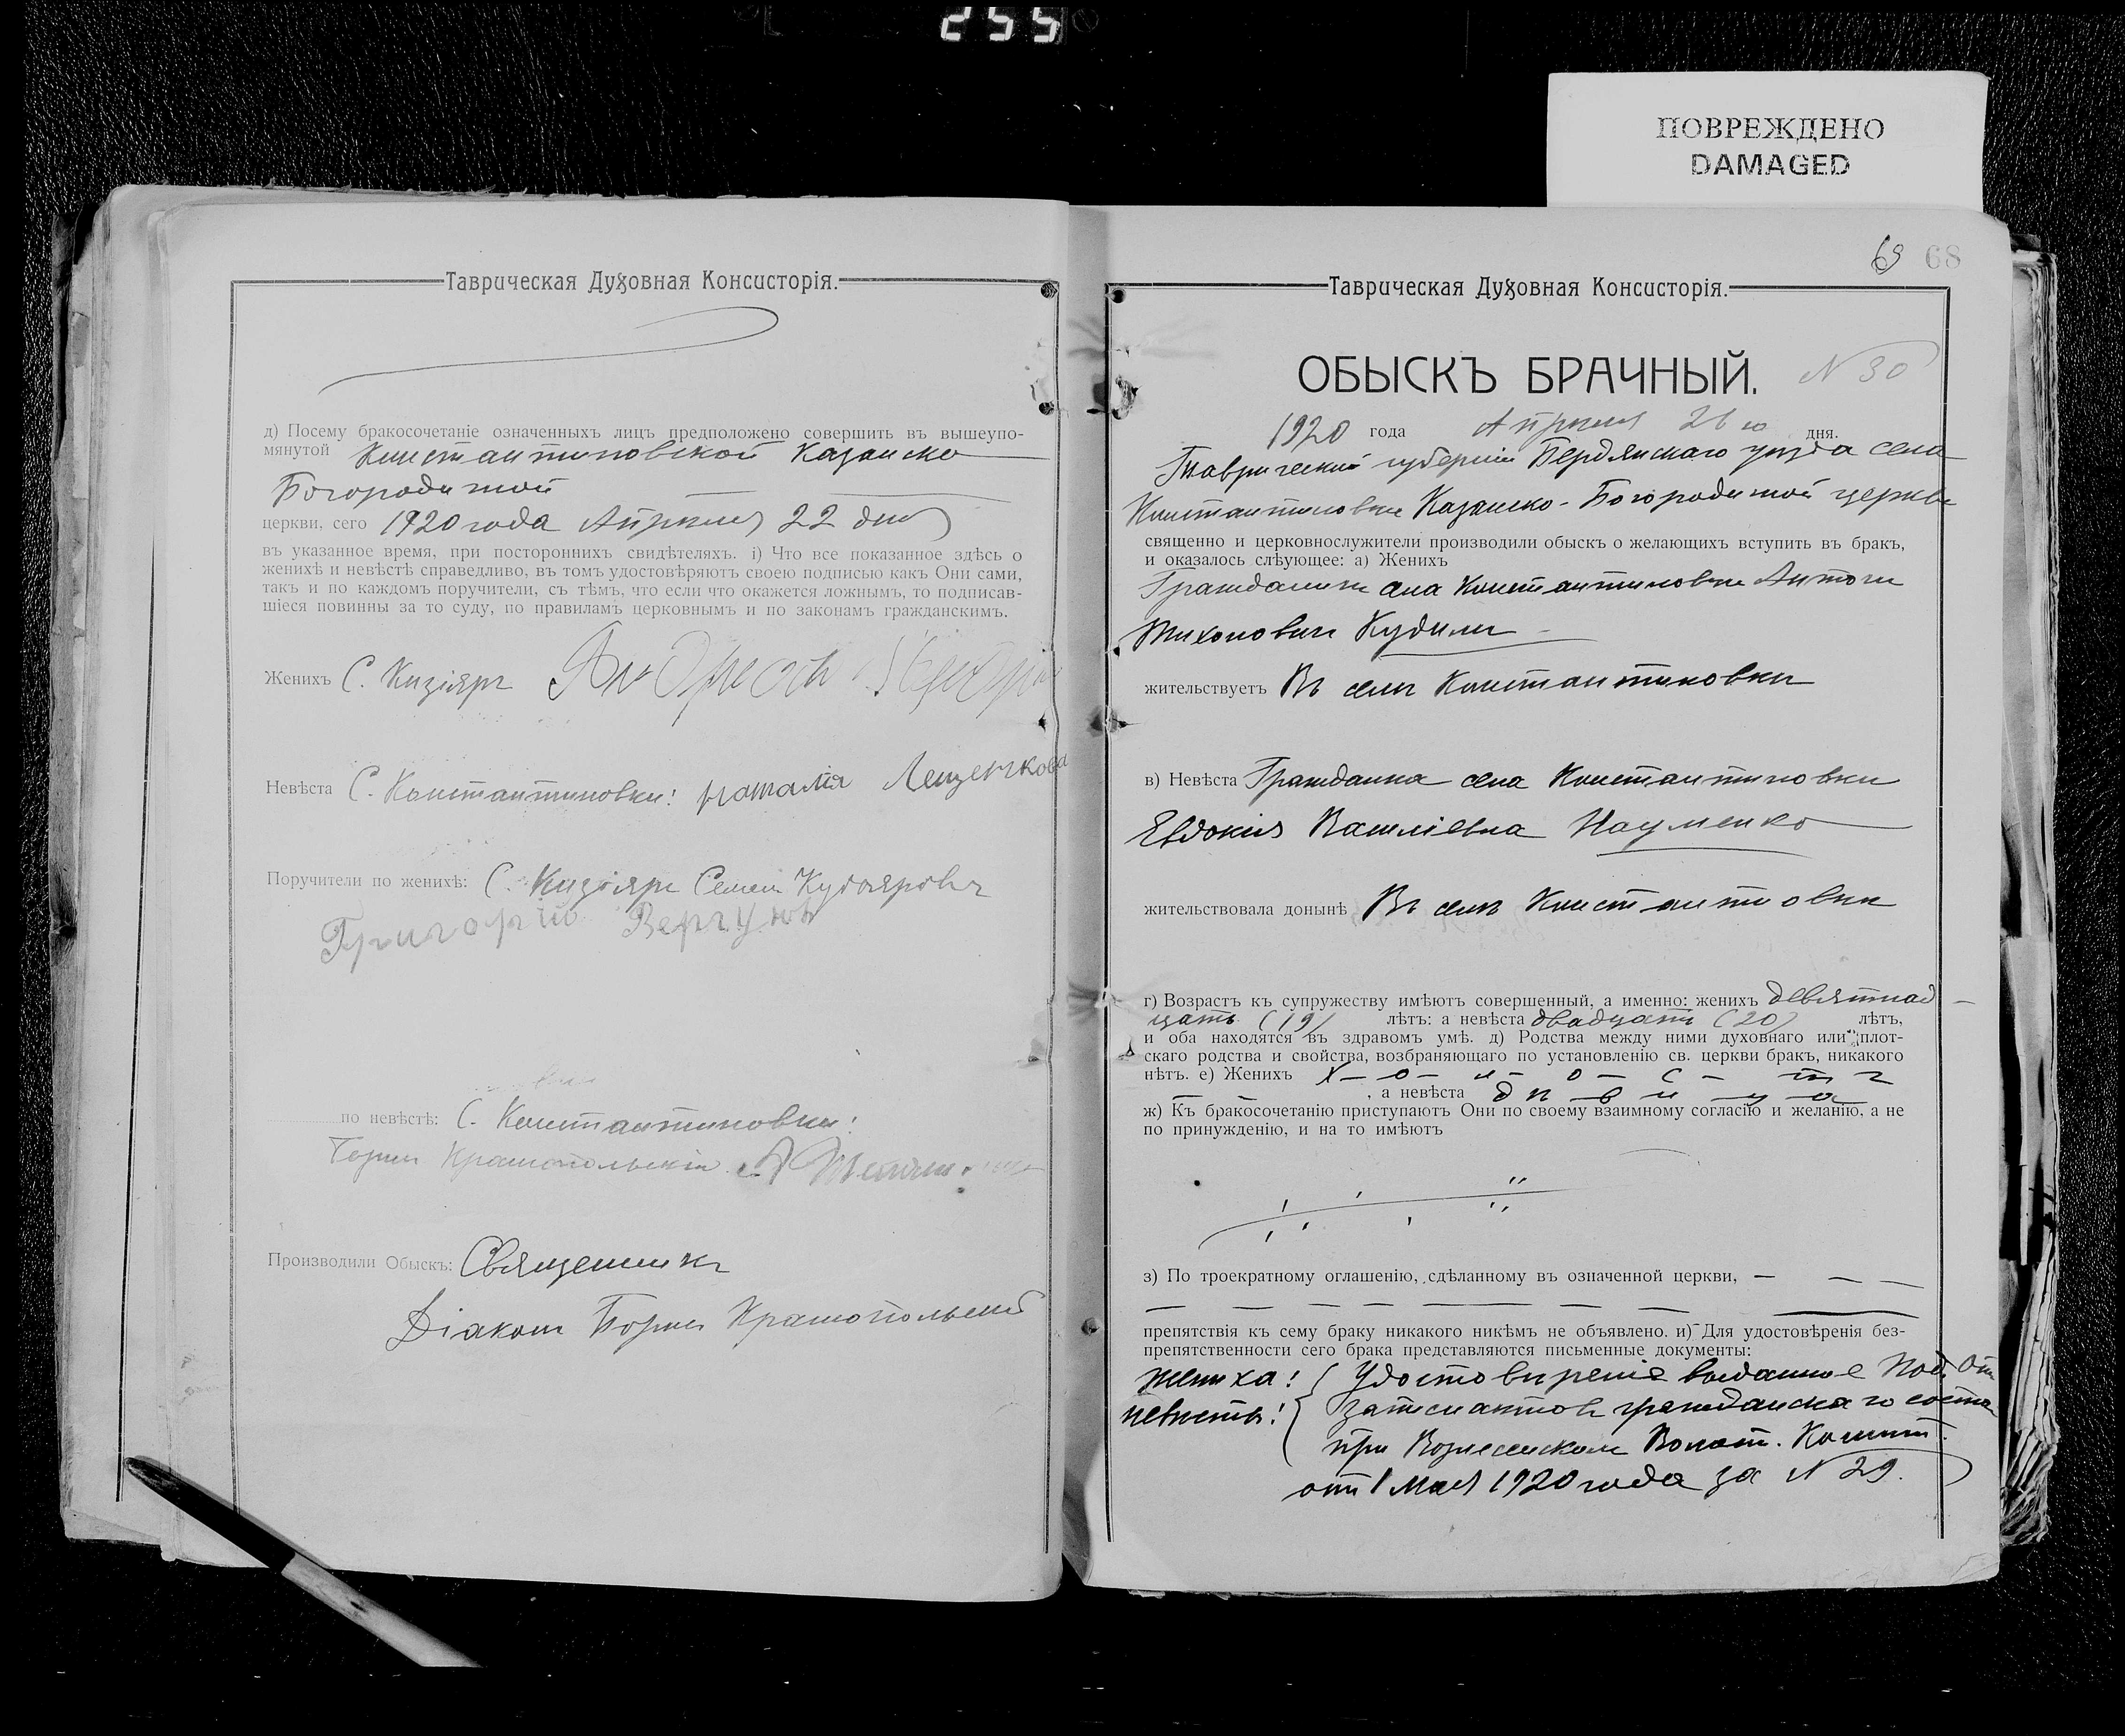 255
ПОВРЕЖДЕНО
DAMAGED
Таврическая Духовная Консисторія.
д) Посему бракосочетаніе означенныхъ лицъ предположено совершить въ вышеупо-
мянутой Константиновской Казанско
Богородичной
церкви, сего 1920 года Апрѣля 22 дня
въ указанное время, при постороннихъ свидѣтеляхъ. і) Что все показанное здѣсь о
женихѣ и невѣстѣ справедливо, въ томъ удостовѣряютъ своею подписью какъ Они сами,
такъ и по каждомъ поручители, съ тѣмъ, что если что окажется ложнымъ, то подписав-
шіеся повинны за то суду, по правиламъ церковнымъ и по законамъ гражданскимъ.
Женихъ С. Кизіяръ
Невѣста С. Константиновки: Наталія Лещенкова
Поручители по женихѣ: С. Кизіяръ Семенъ Кудояровъ
Григорій Вергунъ
по невѣстѣ: С. Константиновки:
Борисъ Крамопольскій
Производили Обыскъ: Священникъ
Діаконъ Борисъ Крамопольскій
69 68
Таврическая Духовная Консисторія.
ОБЫСКЪ БРАЧНЫЙ. N 30
1920 года Апрѣля 26 го дня.
Таврической губерніи Бердянскаго уѣзда села
Константиновки Казанско-Богородичной церкви
священно и церковнослужители производили обыскъ о желающихъ вступить въ бракъ,
и оказалось слѣующее: а) Женихъ
Гражданинъ села Константиновки Антонъ
Тихоновичъ Кудинъ
жительствуетъ Въ селѣ Константиновкѣ
в) Невѣста Гражданка села Константиновки
Евдокія Василіевна Науменко
жительствовала донынѣ Въ селѣ Константиовкѣ
г) Возрастъ къ супружеству имѣютъ совершенный, а именно: женихъ девятнад-
цать (19) лѣтъ: а невѣста двадцать (20) лѣтъ,
и оба находятся въ здравомъ умѣ. д) Родства между ними духовнаго или плот-
скаго родства и свойства, возбраняющаго по установленію св. церкви бракъ, никакого
нѣтъ. е) Женихъ Х-о-л-о-с-тъ
, а невѣста дѣвица
ж) Къ бракосочетанію приступаютъ Они по своему взаимному согласію и желанію, а не
по принужденію, и на то имѣютъ
з) По троекратному оглашенію, сдѣланному въ означенной церкви,
препятствія къ сему браку никакого никѣмъ не объявлено. и) Для удостовѣренія без-
препятственности сего брака представляются письменные документы:
жениха: Удостовѣреніе выданное Под. От.
невѣсты: записи актовъ гражданскаго состо.
при Вознесенском Волост. Комит.
отъ 1 Мая 1920 года за N 29.